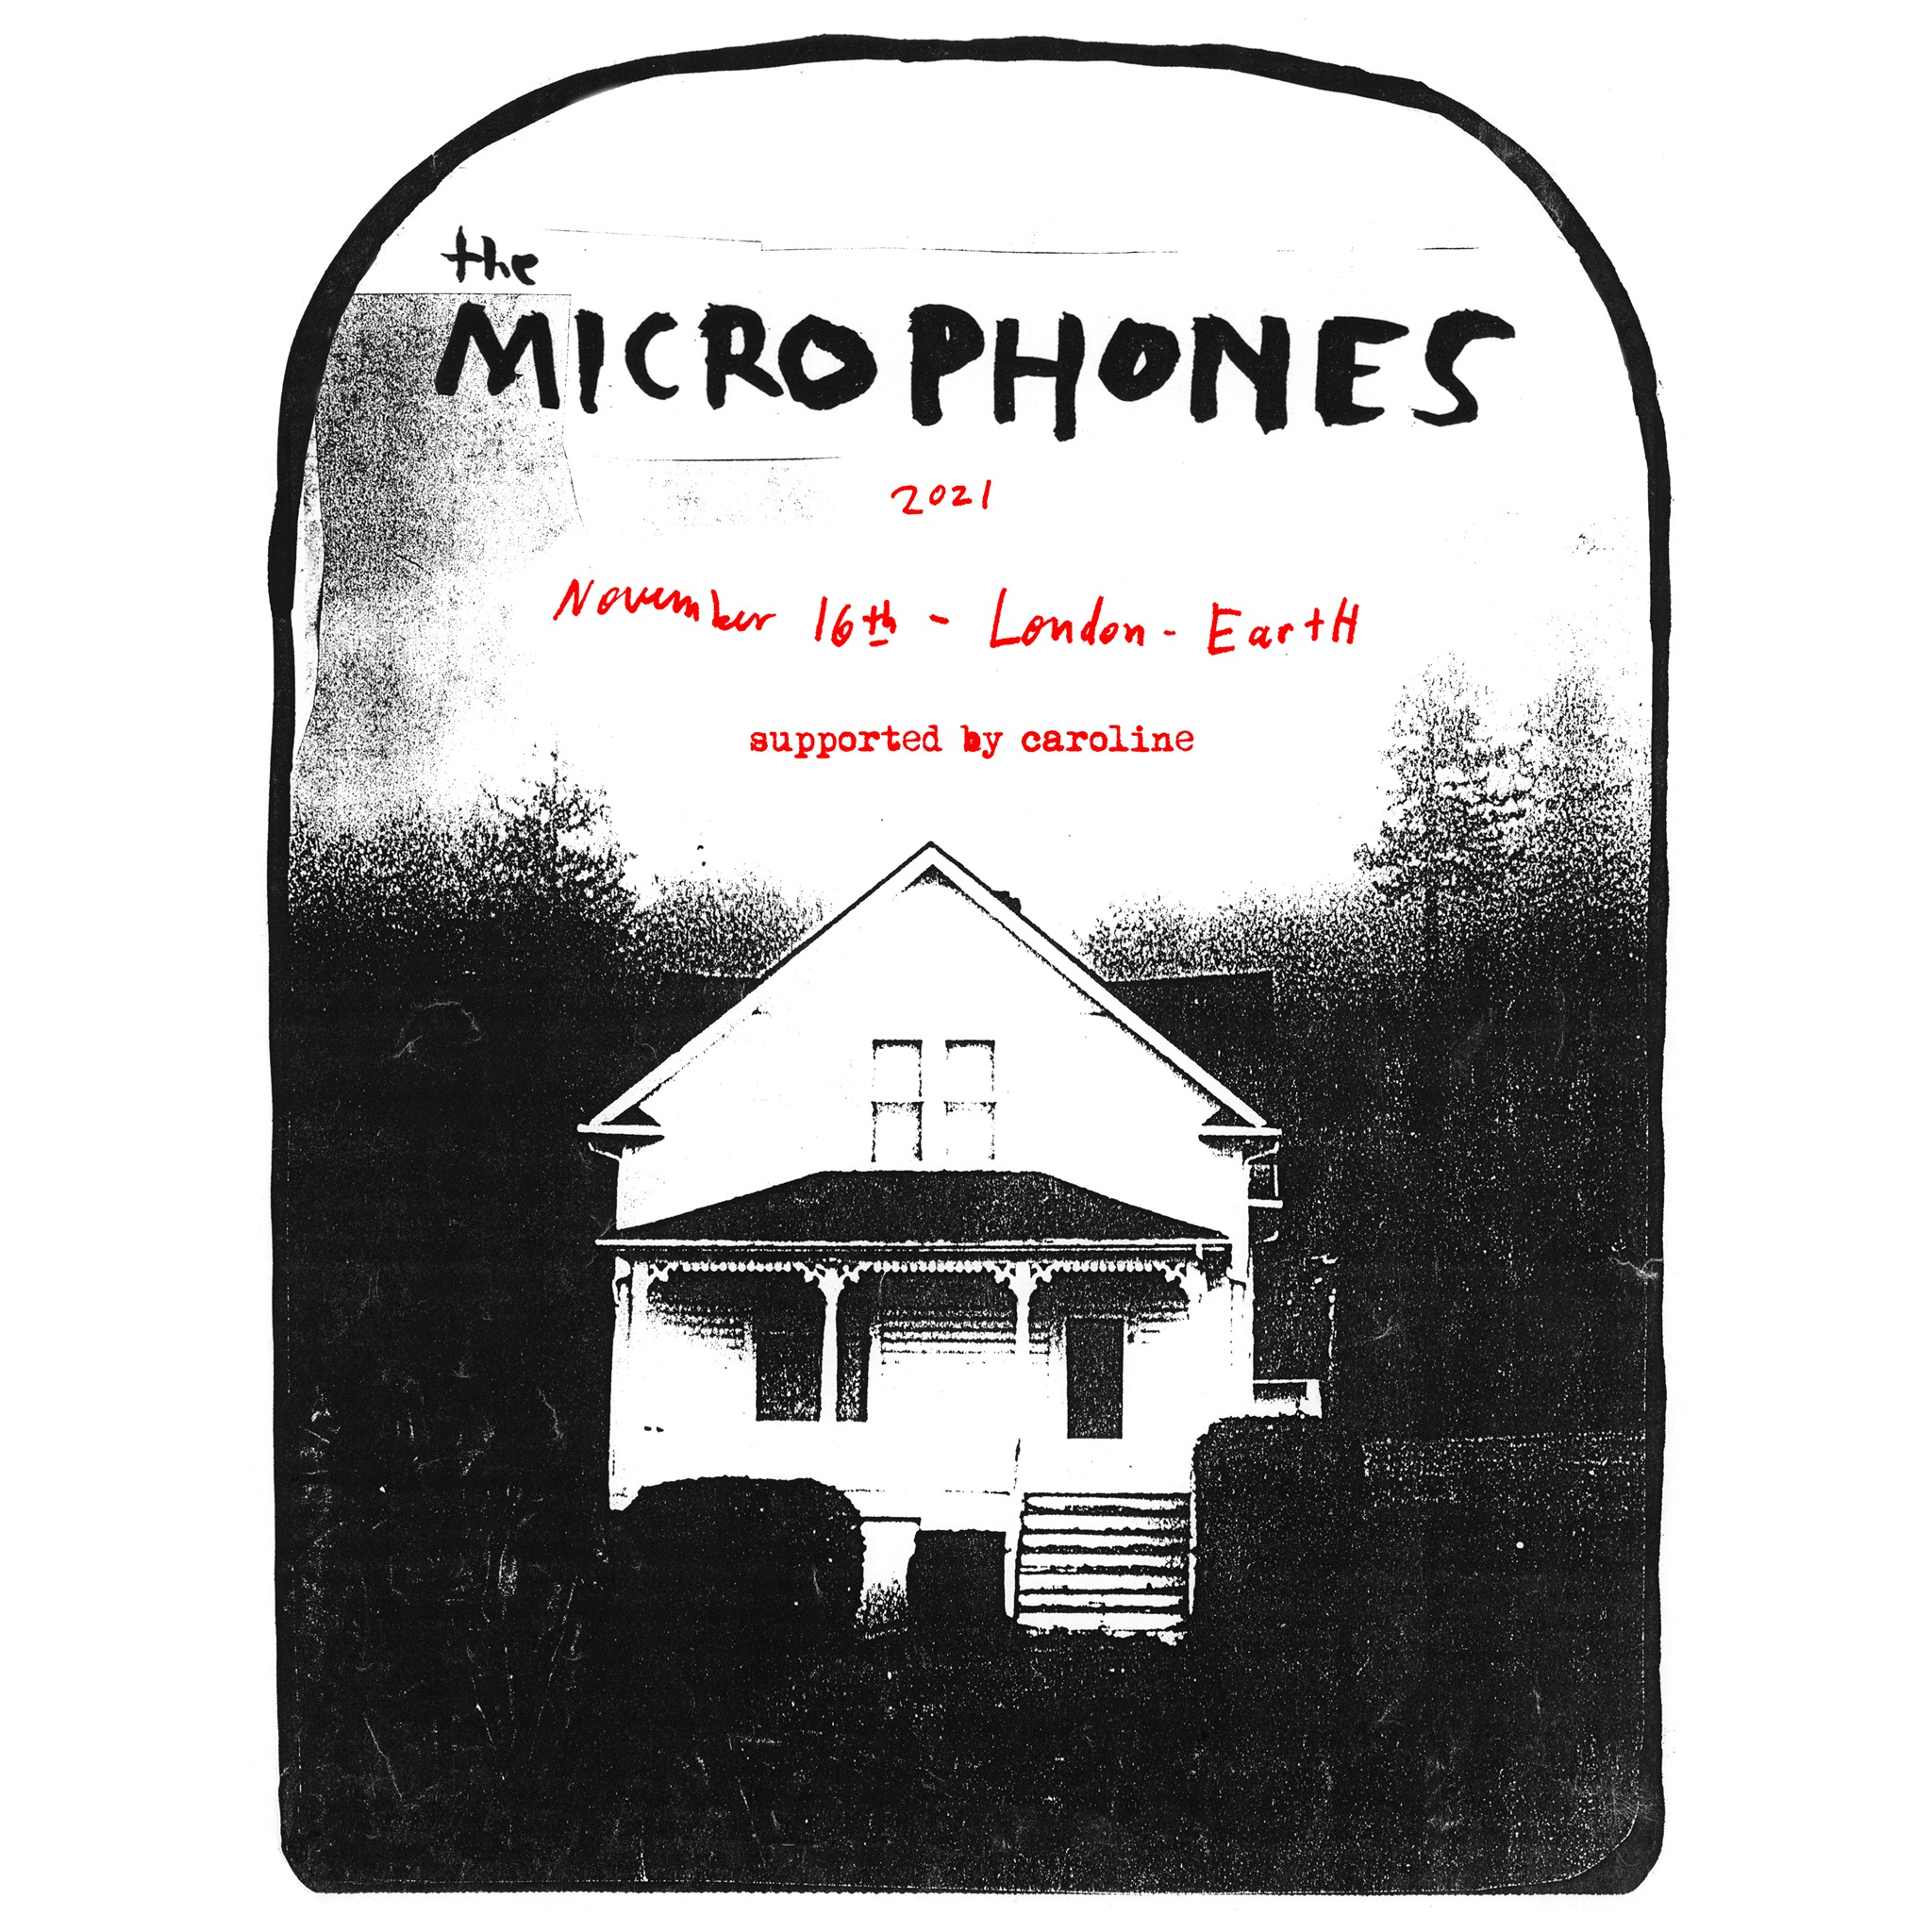 the
MICROPHONES
2021
November 16th - London - EartH
supported by caroline